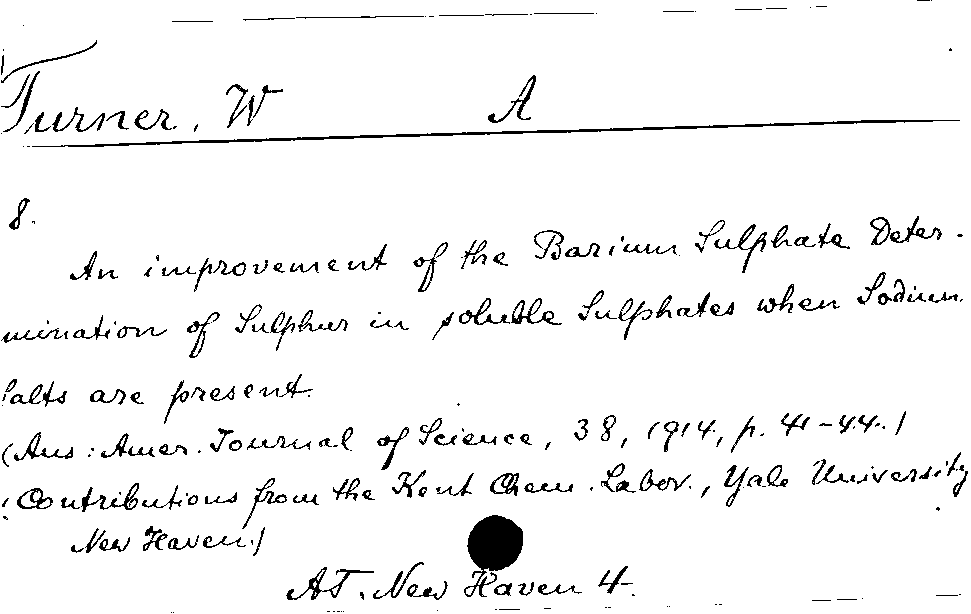 Turner, W A
8.
An improvement of the Barium Sulphate Deter-
mination of Sulphur in soluble Sulphates when Sodium
Salts are present.
(Aus: Amer. Journal of Science, 38, 1914, p. 41-44.)
(Contributions from the Kent Chem. Labor., Yale University
New Haven.)
AT. New Haven 4.